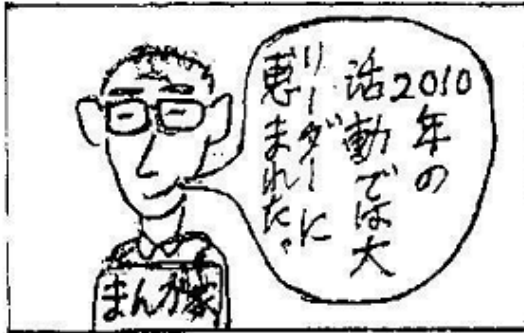 2010年の
活動では大
リーダーに
恵まれた。
まんが家